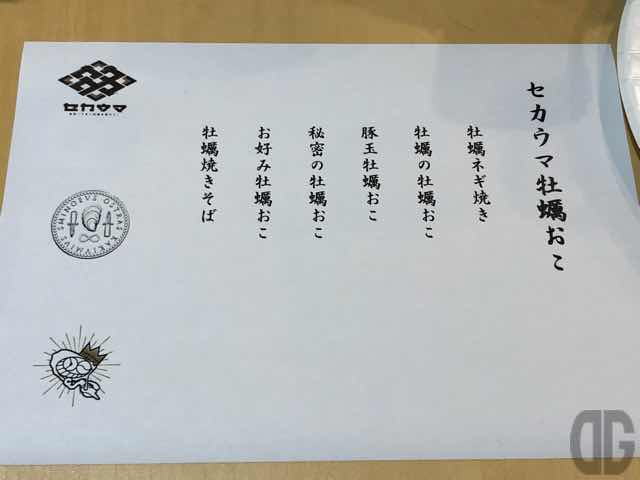 セカウマ牡蠣おこ
牡蠣ネギ焼き
牡蠣の牡蠣おこ
豚玉牡蠣おこ
秘密の牡蠣おこ
お好み牡蠣おこ
牡蠣焼きそば
セカウマ
DG